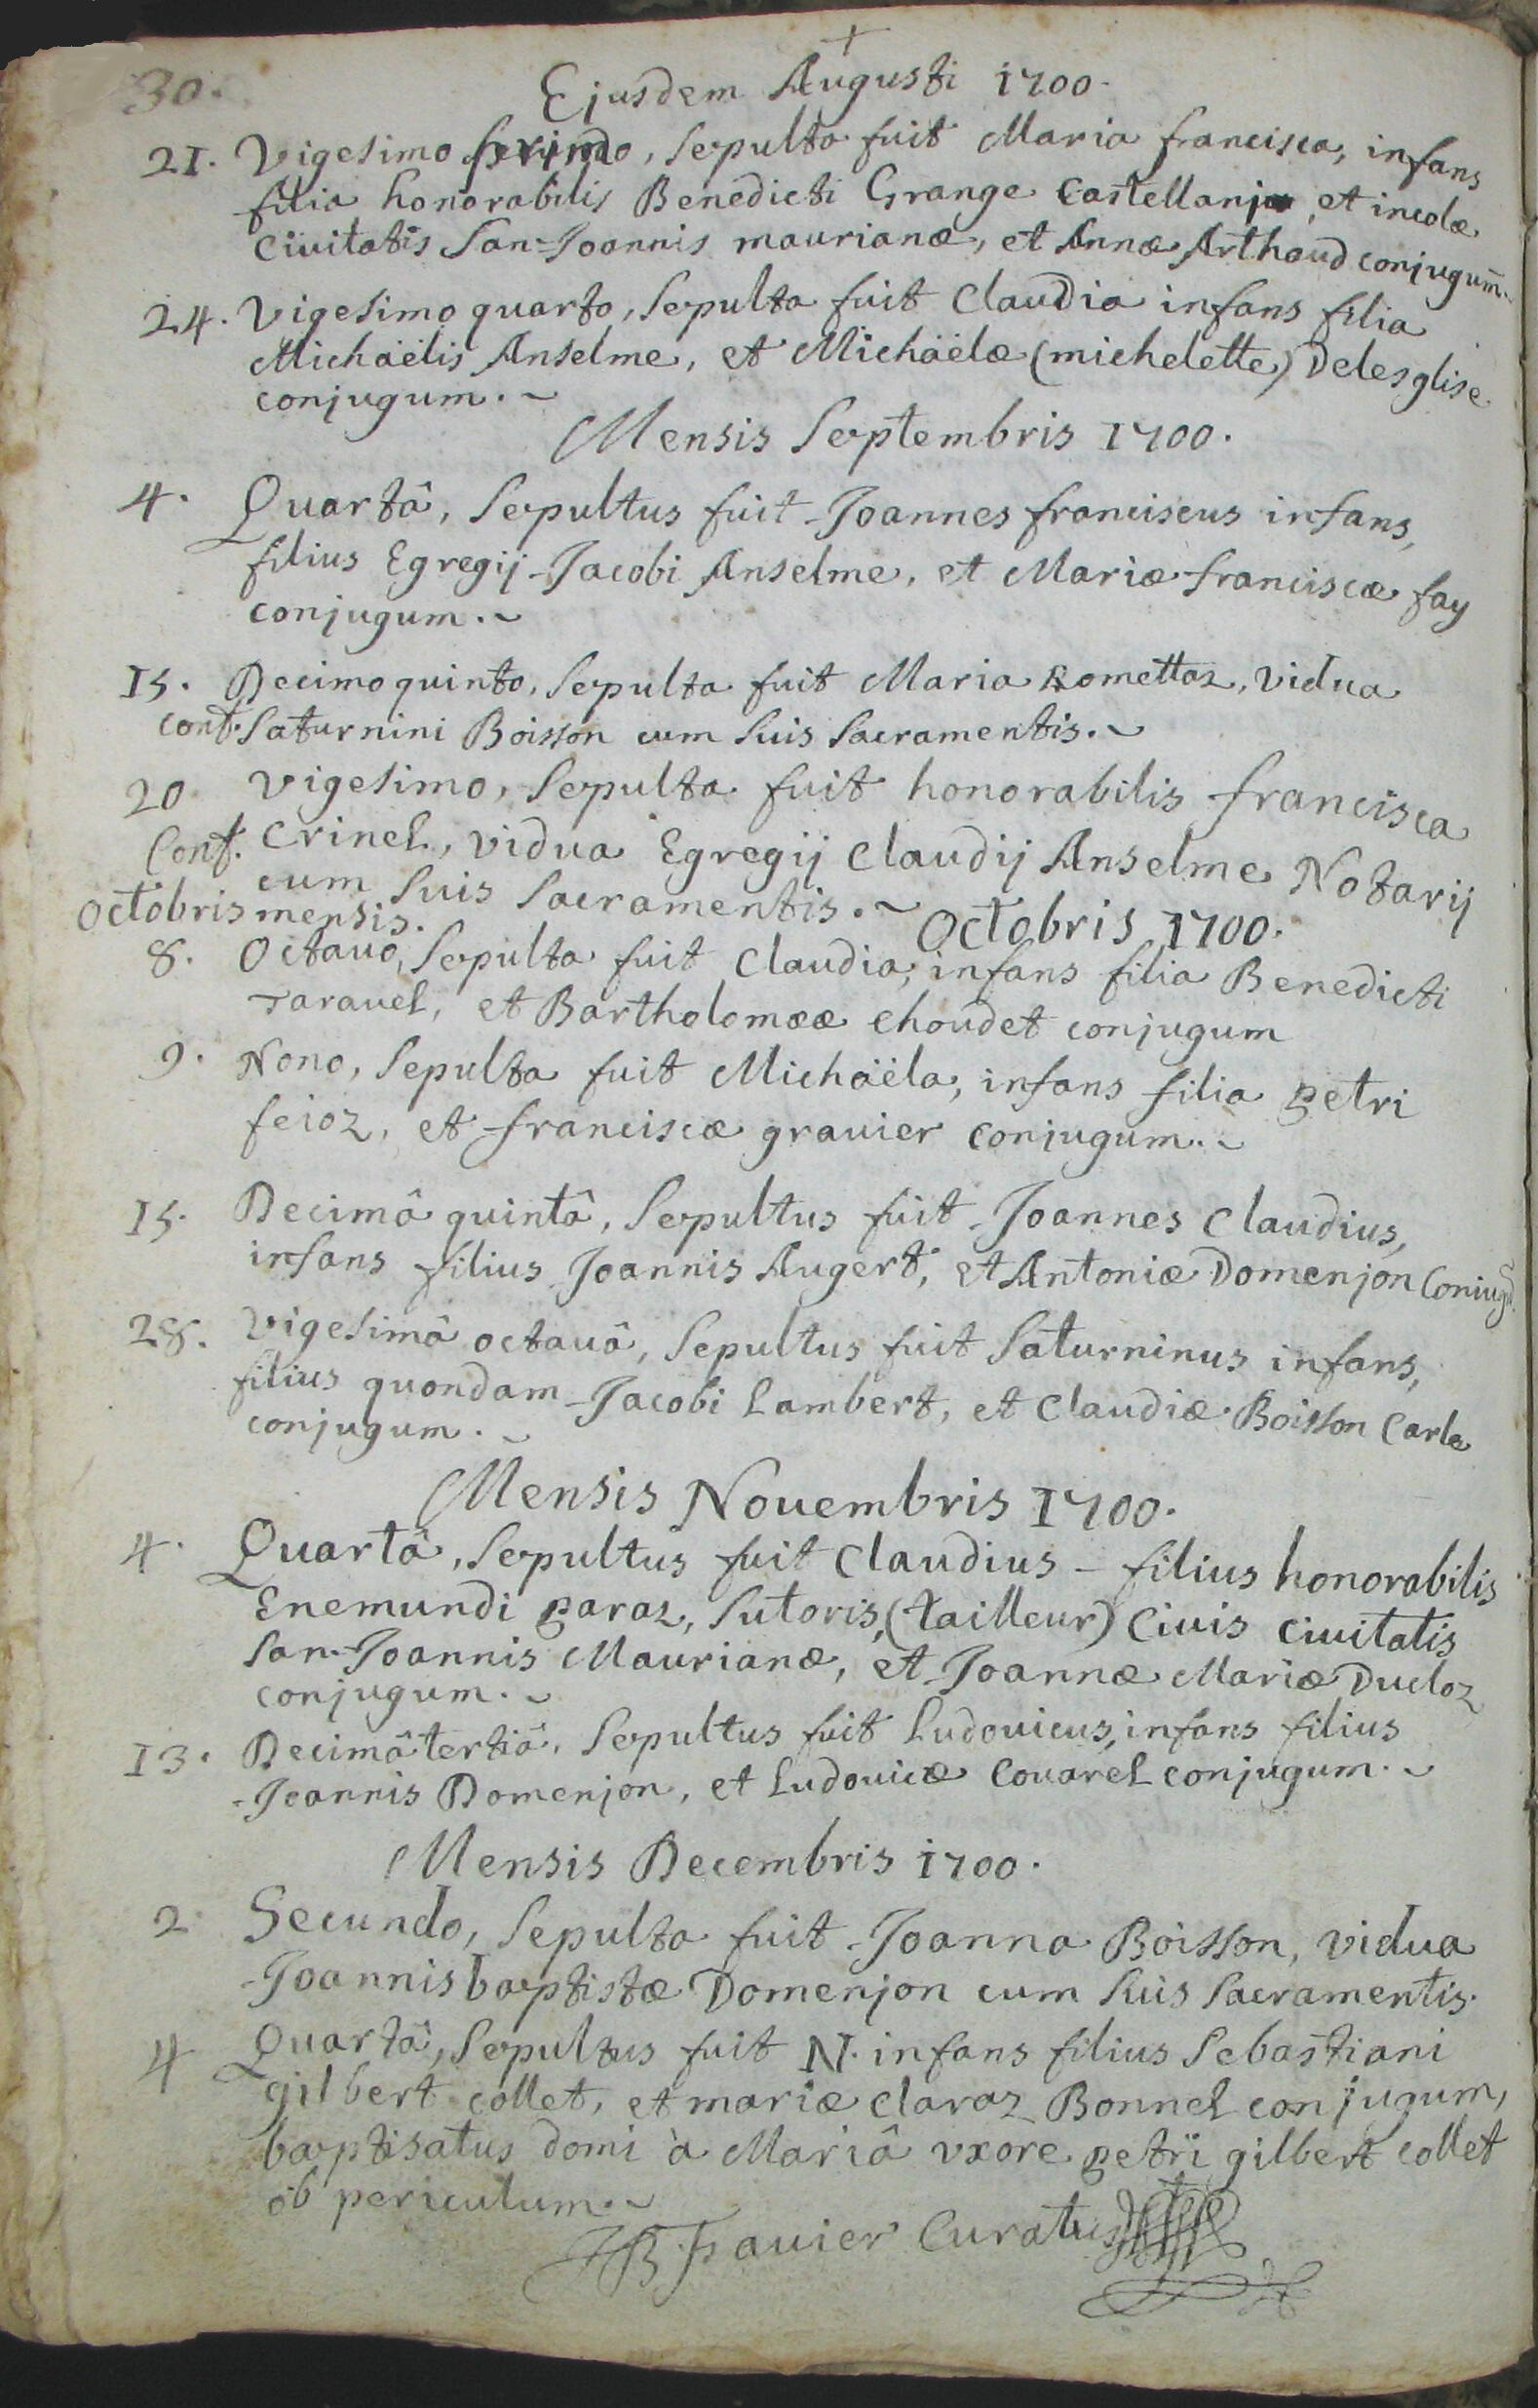 +
30.
Ejusdem Augusti 1700.
21. Vigesimo primo, Sepulta fuit Maria francisca, infans
filia honorabilis Benedicti Grange Castellani, et incolæ
Civitatis San-Joannis maurianæ, et Annæ Arthaud conjugum̄.
24. Vigesimo quarto, Sepulta fuit Claudia infans filia
Michaëlis Anselme, et Michaëlæ (michelette) Delesglise
conjugum. ~
Mensis Septembris 1700.
4. Quartâ, Sepultus fuit Joannes franciscus infans,
filius Egregij Jacobi Anselme, et Mariæ franciscæ fay
conjugum. ~
15. Decimo quinto, Sepulta fuit Maria Romettaz, Vidua
conf. Saturnini Boisson cum Suis Sacramentis. ~
20 Vigesimo, Sepulta fuit honorabilis francisca
Conf. Crinel, Vidua Egregij Claudij Anselme Notarij
cum Suis Sacramentis. ~ Octobris 1700.
Octobris mensis.
8. Octavo, Sepulta fuit Claudia, infans filia Benedicti
Taravel, et Bartholomææ Choudet conjugum
9. Nono, Sepulta fuit Michaëla, infans filia Petri
feioz, et franciscæ gravier conjugum. ~
15. Decimâ quintâ, Sepultus fuit Joannes Claudius,
infans filius Joannis Augert, et Antoniæ Domenjon Coniug.
28. Vigesimâ octavâ, Sepultus fuit Saturninus infans,
filius quondam Jacobi Lambert, et Claudiæ Boisson Carle
conjugum. ~
Mensis Novembris 1700.
4. Quartâ, Sepultus fuit Claudius - filius honorabilis
Enemundi Paraz, Sutoris, (tailleur) Civis Civitatis
San-Joannis Maurianæ, et Joannæ Mariæ Ducloz
conjugum. ~
13. Decimâ tertiâ, Sepultus fuit Ludovicus, infans filius
Joannis Domenjon, et Ludovicæ Covarel conjugum. ~
Mensis Decembris 1700.
2 Secundo, Sepulta fuit Joanna Boisson, Vidua
Joannis baptistæ Domenjon cum Suis Sacramentis.
4 Quartâ, Sepultus fuit N. infans filius Sebastiani
gilbert collet, et mariæ claraz Bonnel conjugum,
baptisatus domi à Mariâ vxore Petri gilbert collet
ob periculum. ~
Curatus